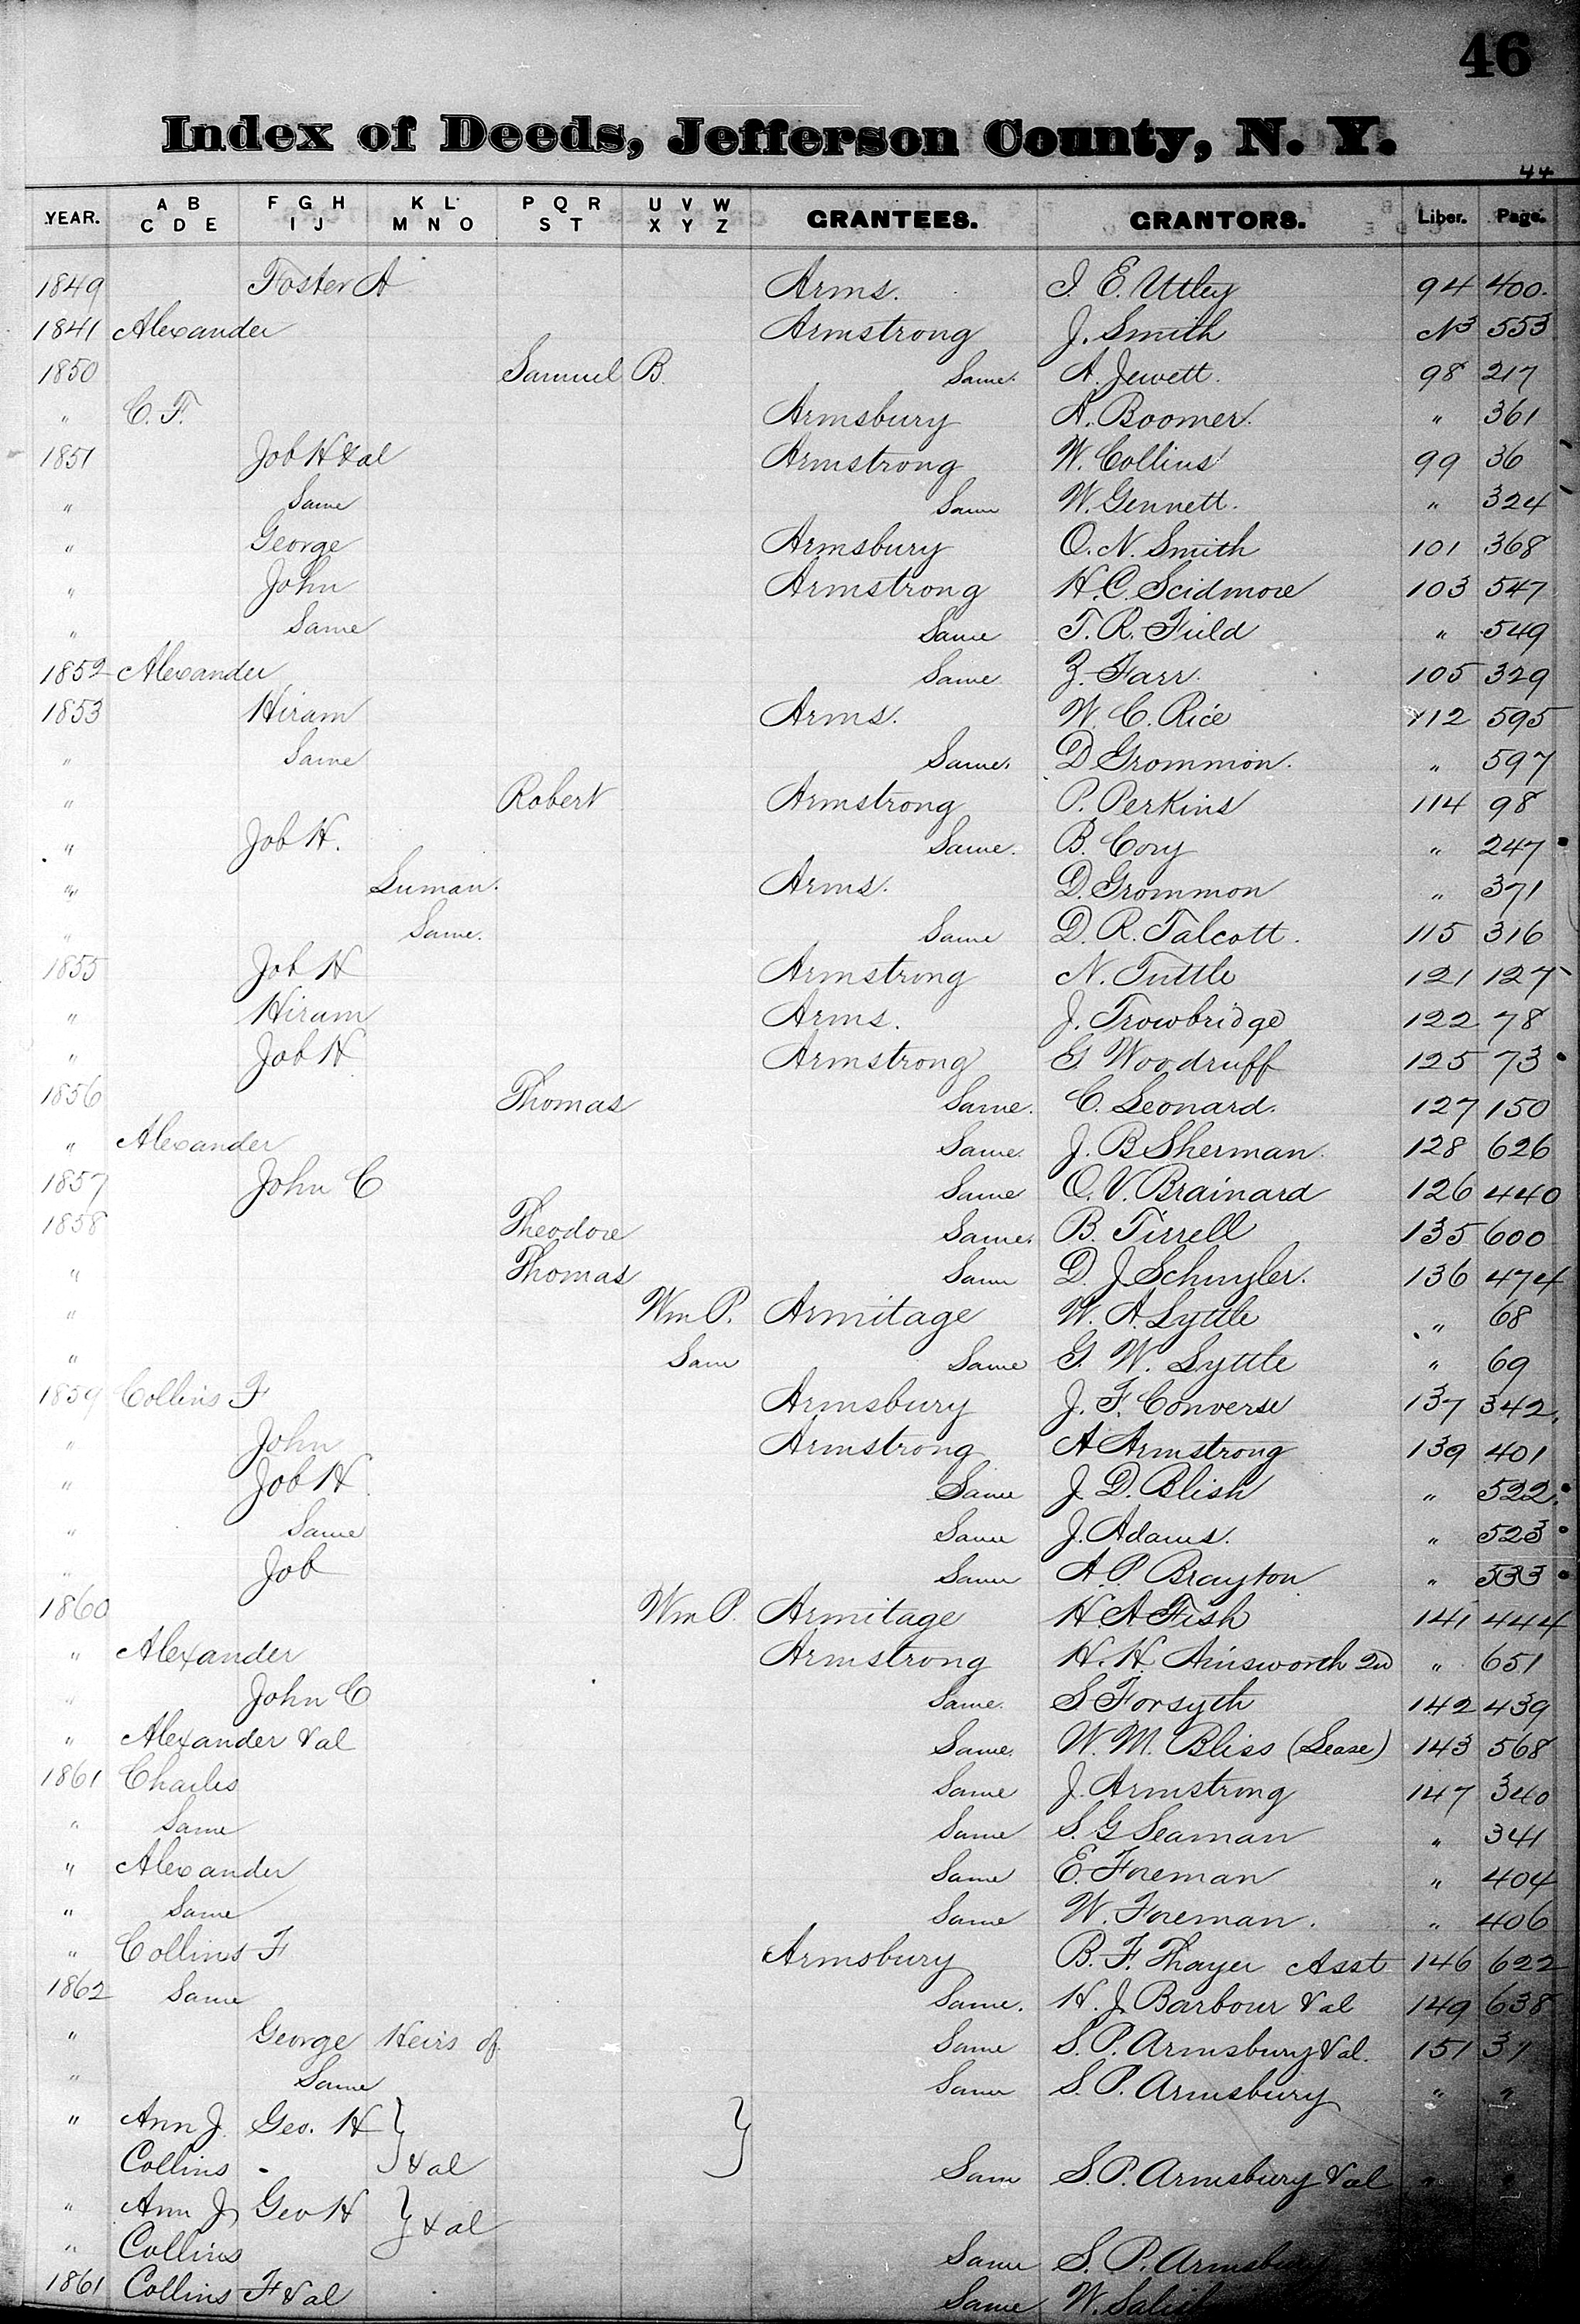 46
Index of Deeds, Jefferson County, N. Y.
44
YEAR. A B C D E F G H I J K L M N O P Q R S T U V W X Y Z GRANTEES. GRANTORS. Liber. Page.
1849 Foster A Arms. I. E. Utley 94 400.
1841 Alexander Armstrong J. Smith N3 553
1850 Samuel B. Same. A. Jewett. 98 217
" C. F. Armsbury A. Boomer. " 361
1851 Job H &al Armstrong W. Collins 99 36
" Same Same W. Gennett. " 324
" George Armsbury O. N. Smith 101 368
" John Armstrong H. C. Scidmore 103 547
" Same Same T. R. Field " 549
1852 Alexander Same Z. Farr. 105 329
1853 Hiram Arms. W. C. Rice 112 595
" Same Same. D Grommon. " 597
" Robert Armstrong P. Perkins 114 98
" Job H. Same. B. Cory " 247
" Luman. Arms. D. Grommon " 371
" Same. Same D. R. Talcott. 115 316
1855 Job H Armstrong N. Tuttle 121 127
" Hiram Arms. J. Trowbridge 122 78
" Job H Armstrong G Woodruff 125 73
1856 Thomas Same. C. Leonard. 127 150
" Alexander Same. J. B Sherman. 128 626
1857 John C Same O. V. Brainard 126 440
1858 Theodore Same. B. Tirrell 135 600
" Thomas Same D. J Schuyler. 136 474
" Wm P. Armitage W. A. Lyttle " 68
" Same Same G. W. Lyttle " 69
1859 Collins F Armsbury J. F. Converse 137 342
" John Armstrong A Armstrong 139 401
" Job H Same J. D. Blish " 522
" Same Same J. Adams. " 523
" Job Same A. P. Brayton " 533
1860 Wm P. Armitage H. A Fish 141 444
" Alexander Armstrong H. H. Ainsworth 2d " 651
" John C Same. S Forsyth 142 439
" Alexander &al Same. W. M. Bliss (Lease) 143 568
1861 Charles Same J. Armstrong 147 340
" Same Same S. G Seaman " 341
" Alexander Same E. Foreman " 404
" Same Same W. Foreman. " 406
" Collins F Armsbury B. F. Thayer Asst 146 622
1862 Same Same. H. J. Barbour &al 149 638
" George Heirs of Same S. P. Armsbury &al. 151 31
" Same Same S. P. Armsbury " "
" Ann J. Geo. H
Collins " &al Same S. P. Armsbury &al " "
" Ann J Geo H &al
" Collins Same S. P. Armsbury
1861 Collins F &al Same W.